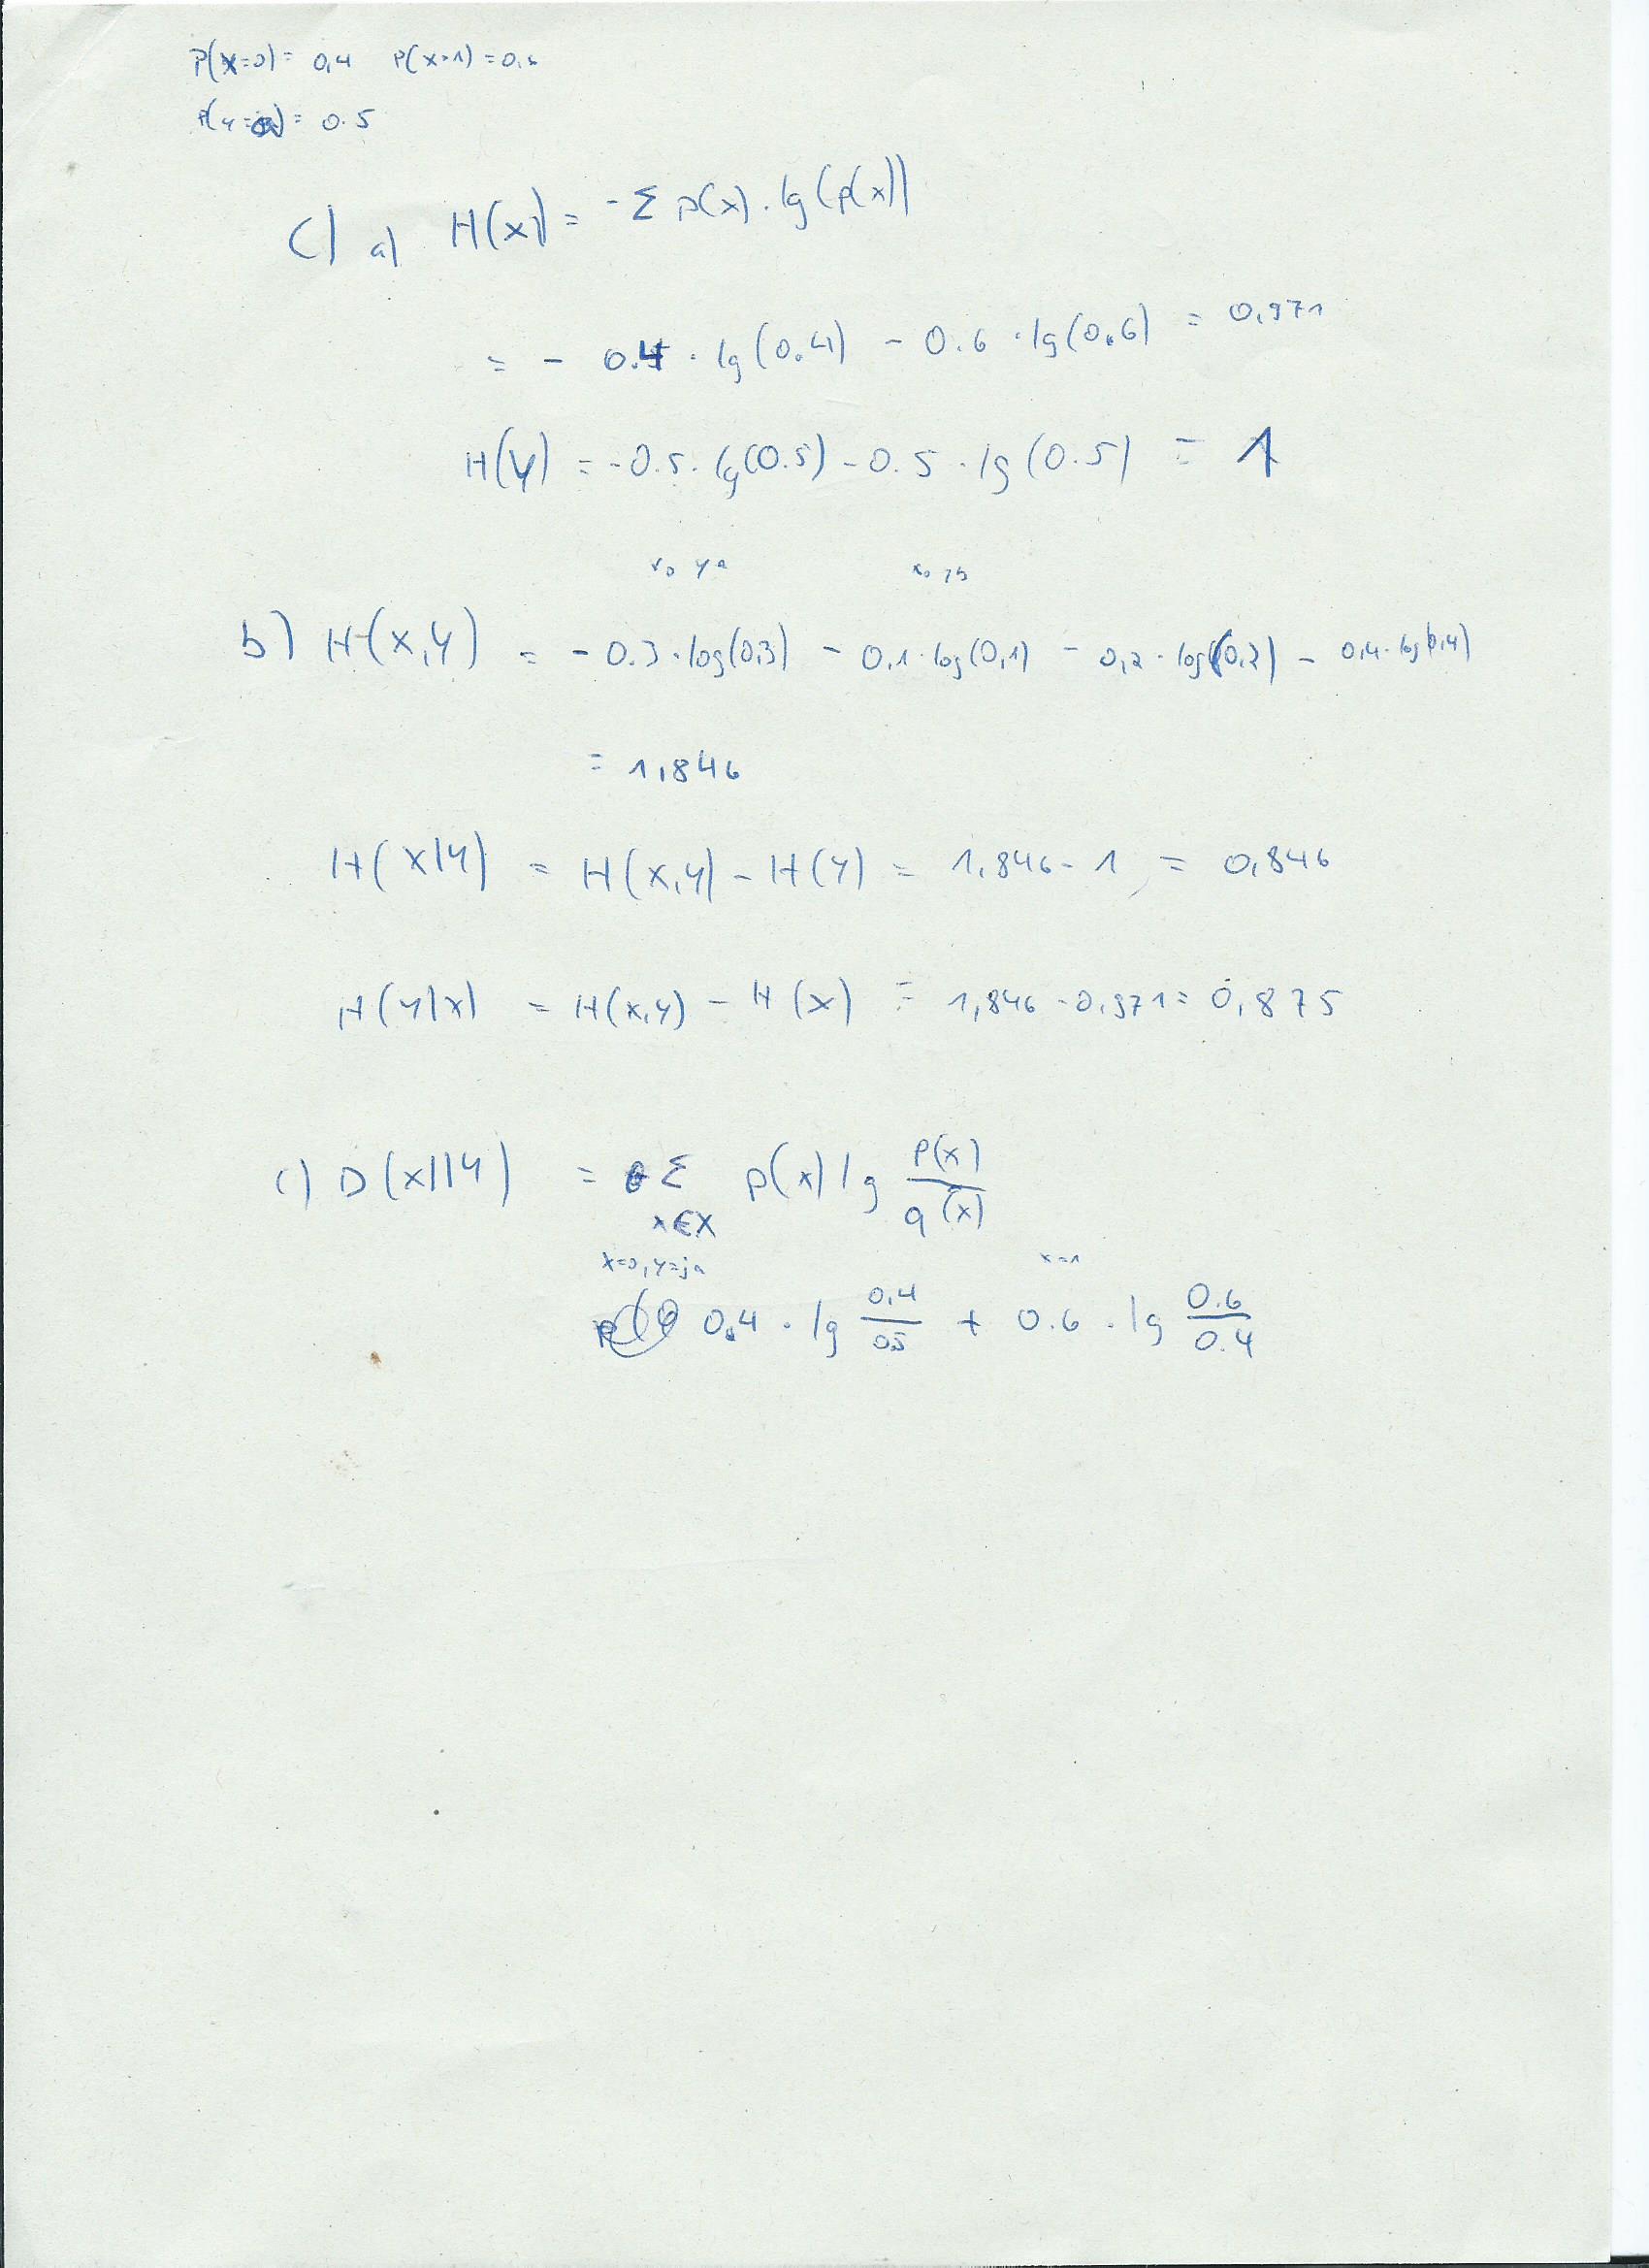 P(x=0) = 0,4 P(x=1) = 0,6
P(y=a) = 0.5
C) a) H(x) = -Σ p(x) · lg(p(x))
= - 0.4 · lg(0.4) - 0.6 · lg(0.6) = 0,971
H(y) = -0.5 · lg(0.5) - 0.5 · lg(0.5) = 1
x0 ya x0 yb
b) H(x,y) = - 0.3 · log(0,3) - 0,1 · log(0,1) - 0,2 · log(0,2) - 0,4 · log(0,4)
= 1,846
H(x|y) = H(x,y) - H(y) = 1,846 - 1 = 0,846
H(y|x) = H(x,y) - H(x) = 1,846 - 0,971 = 0,875
c) D(x||y) = Σ p(x) lg p(x)/q(x)
x∈X
x=0, y=ja x=1
0.4 · lg 0,4/0.5 + 0.6 · lg 0.6/0.4